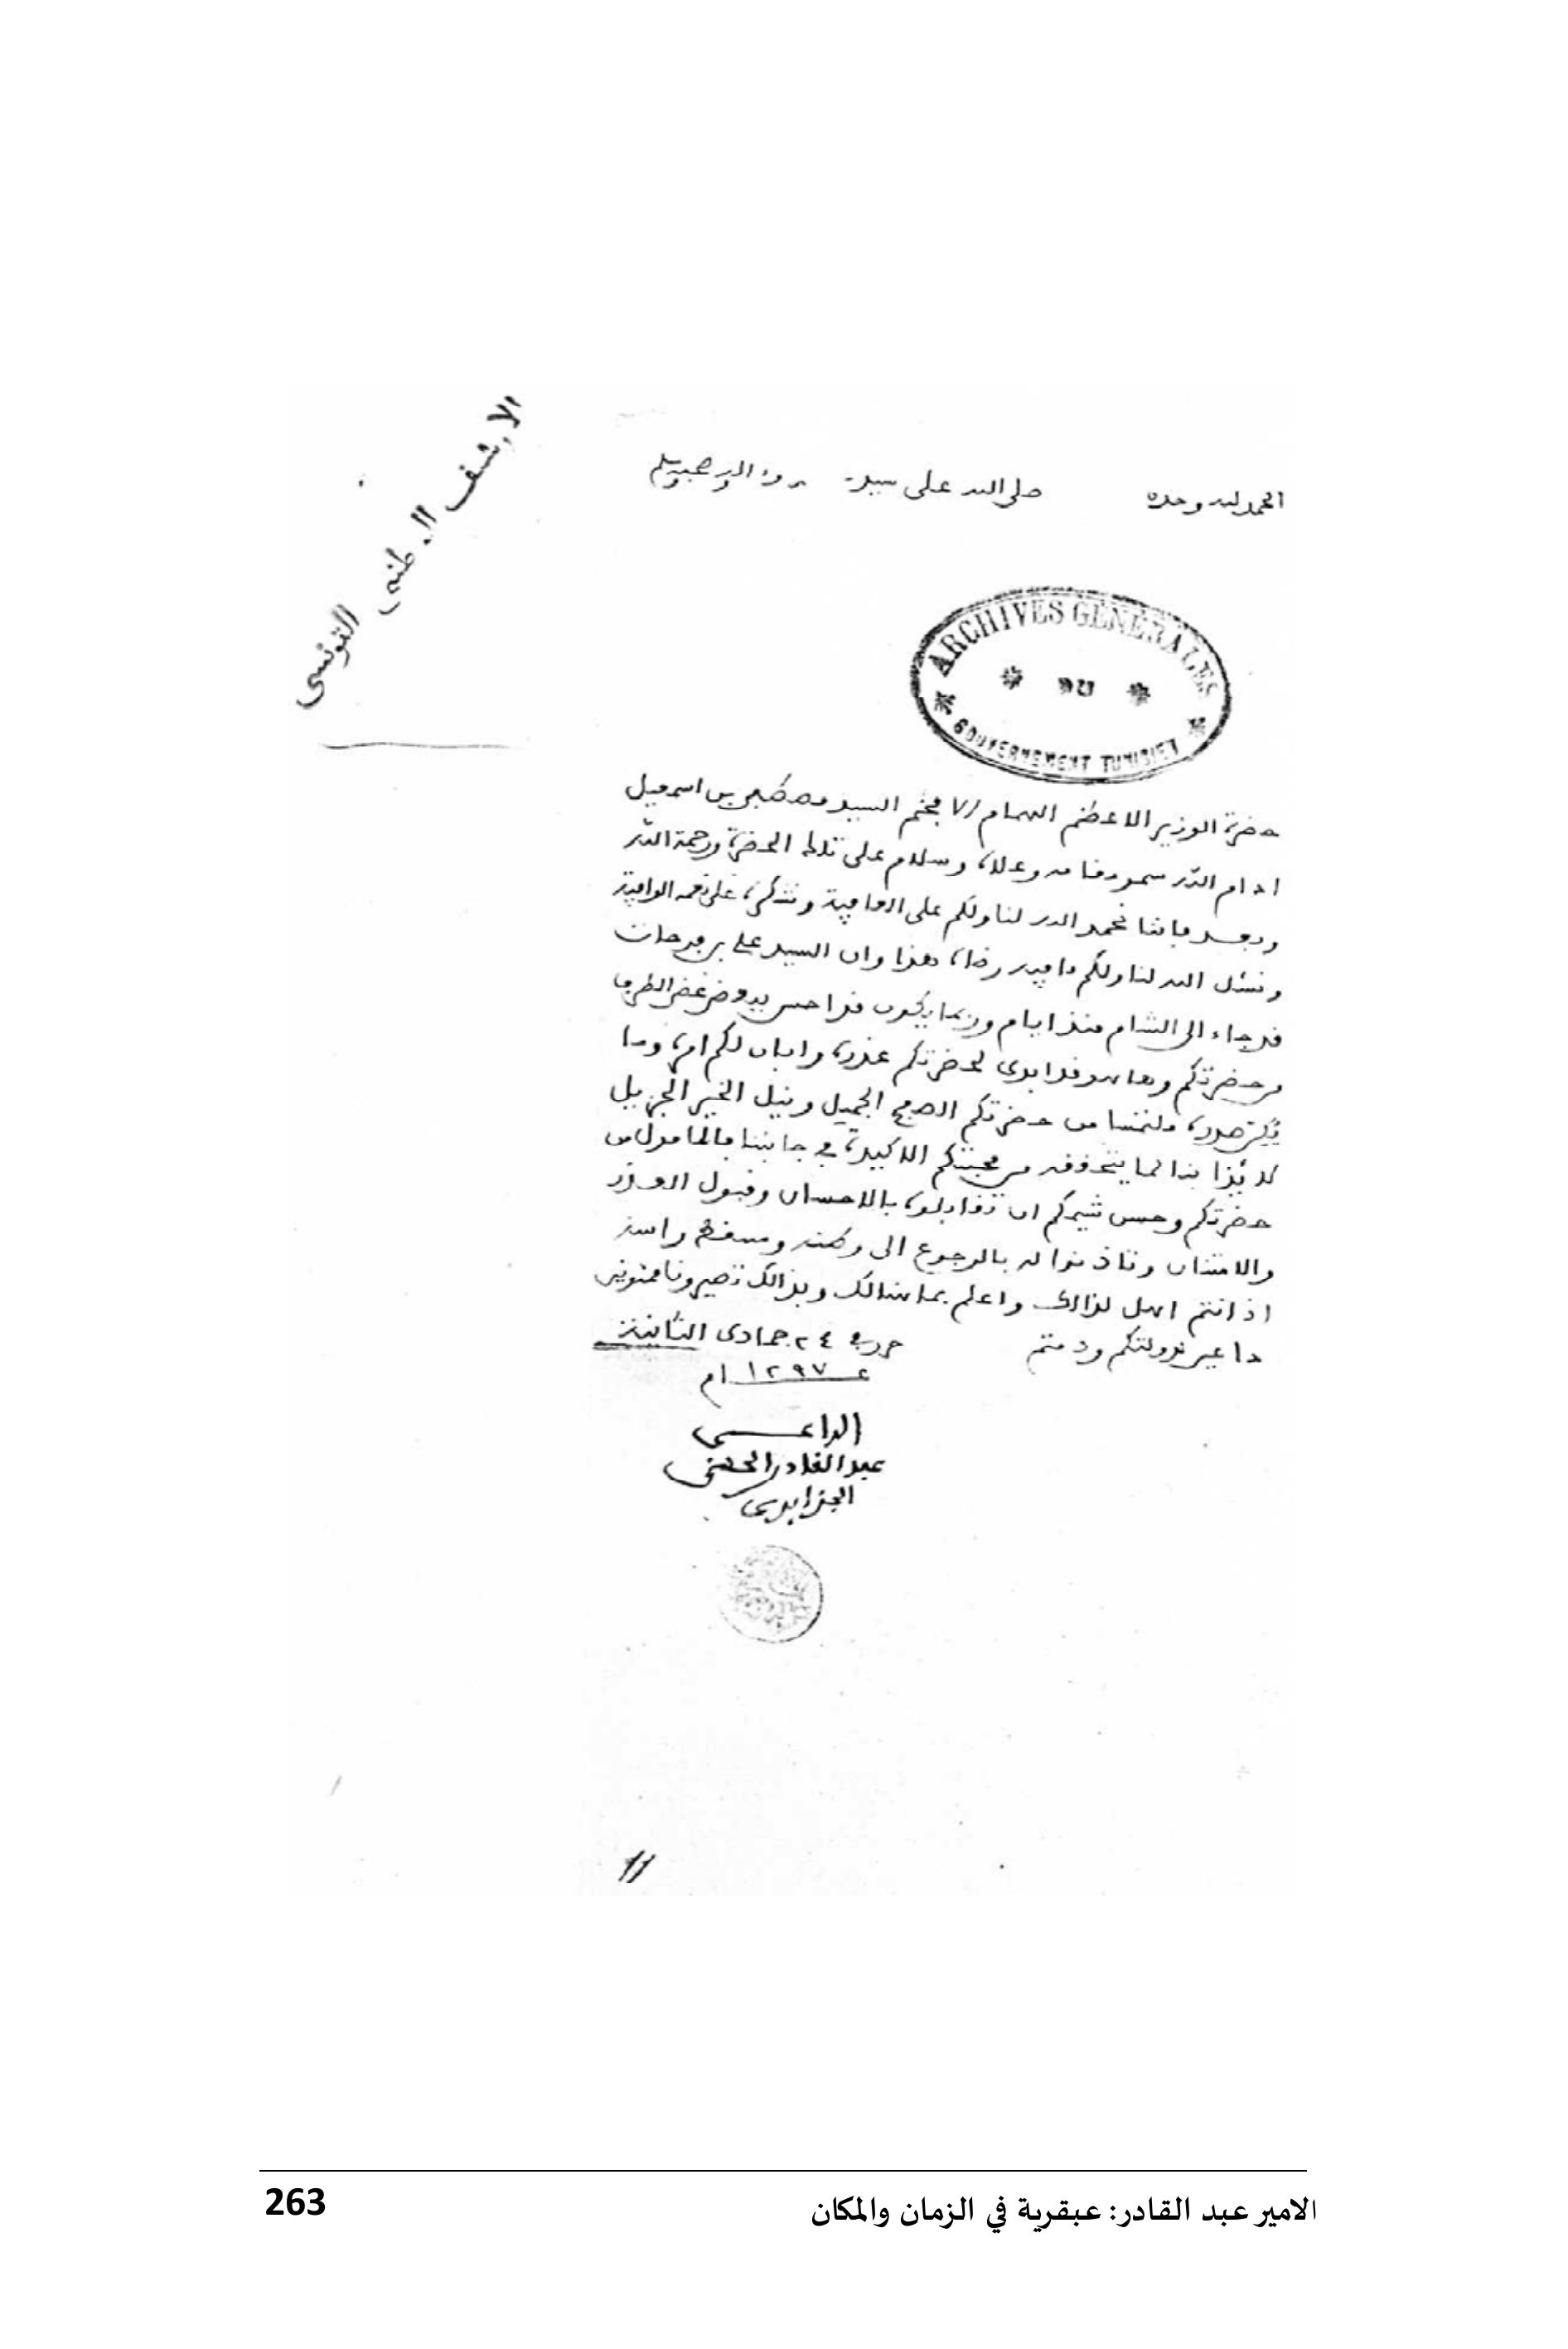 الارشف الوطني التونسي
الحمد لله وحده صلى الله على سيدنا واله وصحبه وسلم
ARCHIVES GENERALES
DU
GOUVERNEMENT TUNISIEN
حضرة الوزير الاعظم الهمام الافخم السيد مصطفى بن اسمعيل
ادام الله سموه وعلاه وسلام على تلك الحضرة ورحمة الله
وبعد فاننا نحمد الله لنا ولكم على العافية ونشكره على نعمه الوافية
ونسئل الله لنا ولكم ما فيه رضاه هذا وان السيد علي بن فرحات
قد جاء الى الشام منذ ايام وربما يكون قد احس ببعض غض الطرف
من حضرتكم وها هو قد ابدى لحضرتكم عذره وابان لكم امره وما
يكن صدره ملتمسا من حضرتكم الصفح الجميل ونيل الخير الجزيل
بنا لما يتحققه من محبتكم الاكيدة في جانبنا فالمامول من
حضرتكم وحسن شيمكم ان تقابلوه بالاحسان وقبول العذر
والامتنان وتاذنوا له بالرجوع الى وطنه ومسقط راسه
اذ انتم اهل لذالك واعلم بما هنالك وبذالك تصيرونا ممنونين
داعين لدولتكم ودمتم حرر في ٢٤ جمادى الثانية
١٢٩٧
الداعي
عبد القادر الحسني
الجزايري
11
الامير عبد القادر: عبقرية في الزمان والمكان
263